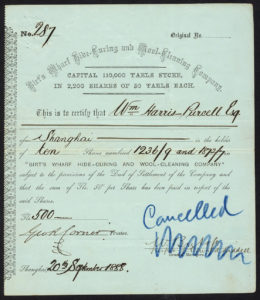 No. 287
Original No.
Birt's Wharf Hide-Curing and Wool-Cleaning Company.
CAPITAL 110,000 TAELS STOCK,
IN 2,200 SHARES OF 50 TAELS EACH.
This is to certify that Wm Harris Purcell Esq
of Shanghai is the holder
of ten Shares numbered 1236/9 and
"BIRT'S WHARF HIDE-CURING AND WOOL-CLEANING COMPANY"
subject to the provisions of the Deed of Settlement of the Company and
that the sum of Tls. 50 per Share has been paid in respect of the
said Shares.
Tls 500
Geo R Corner
Cancelled
Shanghai 20th September 1888.